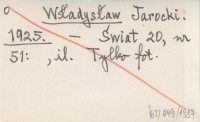 Władysław Jarocki.
1925. — Świat 20, nr
51: , il. Tylko fot.